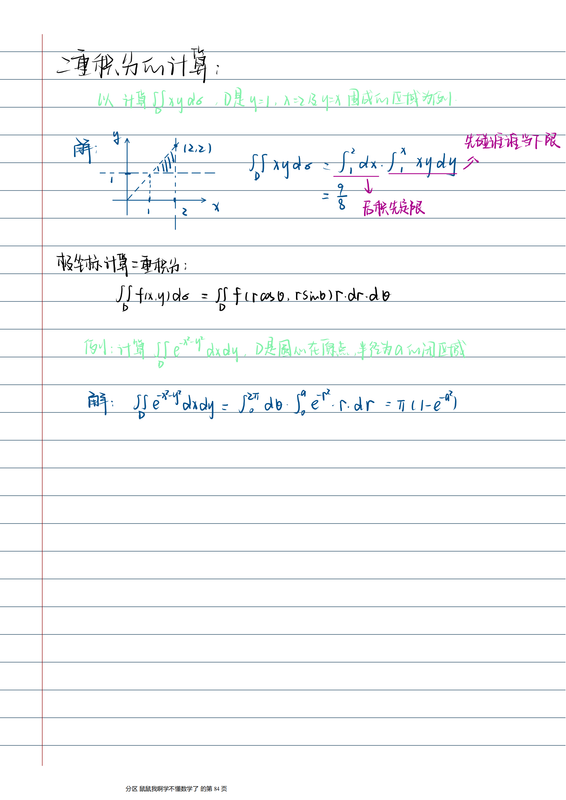 二重积分的计算:
以计算∬_D xydσ, D是y=1, x=2及y=x围成的区域为例
先碰谁谁当下限
解: y (2,2) 1 1 2 x
∬_D xydσ = ∫₁² dx·∫₁ˣ xydy
= 9/8
后积先定限
极坐标计算二重积分:
∬_D f(x,y)dσ = ∬_D f(rcosθ, rsinθ)r·dr·dθ
例:计算∬_D e^{-x²-y²}dxdy, D是圆心在原点,半径为a的闭区域
解: ∬_D e^{-x²-y²}dxdy = ∫₀^{2π} dθ·∫₀^a e^{-r²}·r·dr = π(1-e^{-a²})
分区 鼠鼠我啊学不懂数学了 的第 84 页